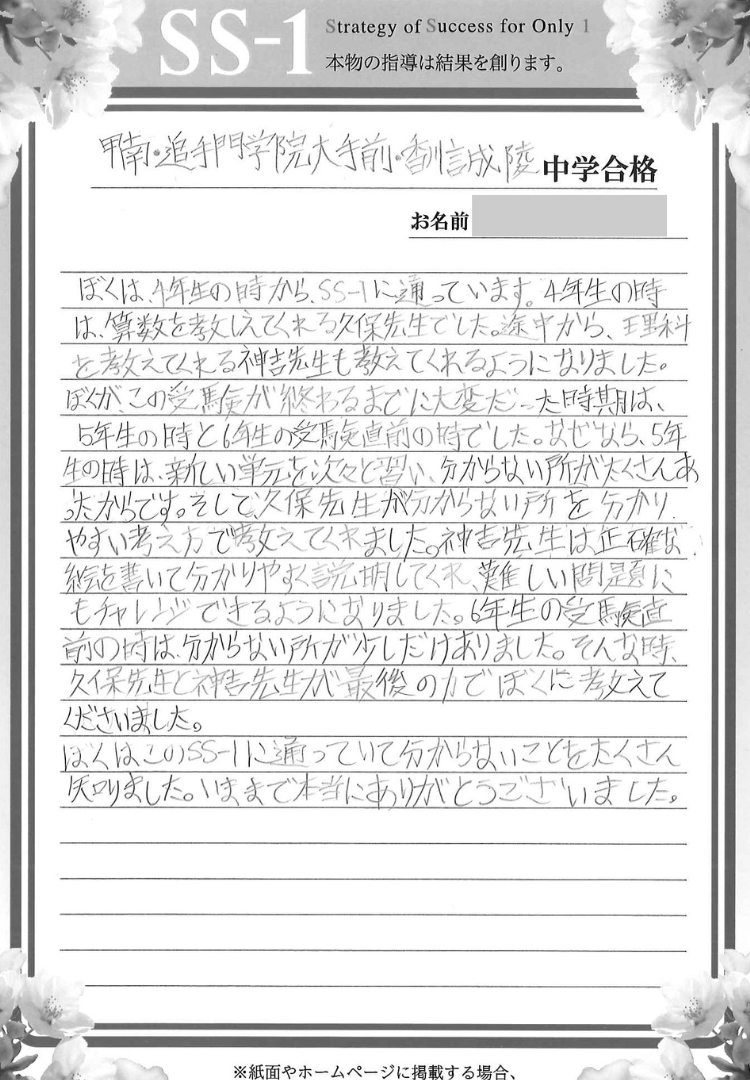 SS-1
Strategy of Success for Only 1
本物の指導は結果を創ります。
甲南・追手門学院大手前・香川誠陵 中学合格
お名前
ぼくは、4年生の時から、SS-1に通っています。4年生の時
は、算数を教えてくれる久保先生でした。途中から、理科
を教えてくれる神吉先生も教えてくれるようになりました。
ぼくが、この受験が終わるまでに大変だった時期は、
5年生の時と6年生の受験直前の時でした。なぜなら、5年
生の時は、新しい単元を次々と習い、分からない所がたくさんあ
ったからです。そして、久保先生が分からない所を分かり
やすい考え方で教えてくれました。神吉先生は正確な
絵を書いて分かりやすく説明してくれ、難しい問題に
もチャレンジできるようになりました。6年生の受験直
前の時は、分からない所が少しだけありました。そんな時、
久保先生と神吉先生が最後の力でぼくに教えて
くださいました。
ぼくはこのSS-1に通っていて分からないことをたくさん
知りました。いままで本当にありがとうございました。
※紙面やホームページに掲載する場合、